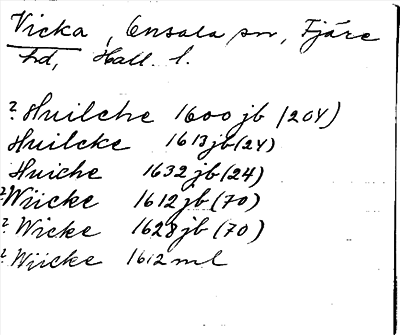 Vicka, Onsala sn, Fjäre
hd, Hall. l.
? Huilche 1600 jb (204)
Huilcke 1613 jb (24)
Huiche 1632 jb (24)
? Wiicke 1612 jb (70)
? Wicke 1628 jb (70)
? Wiicke 1612 ml